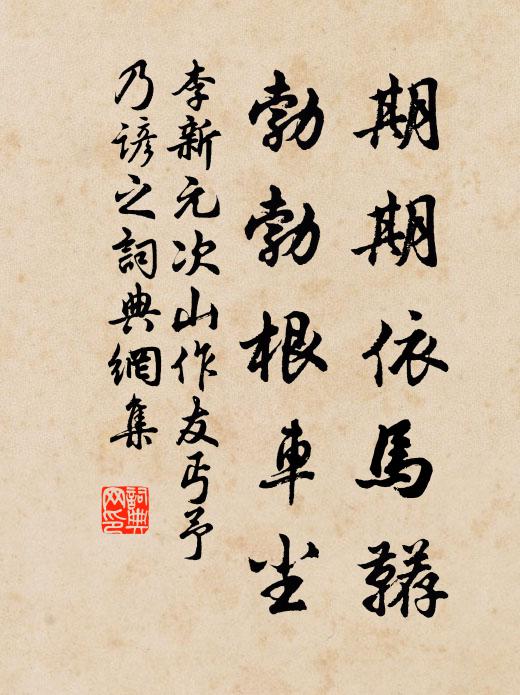 期期依馬韀
勃勃根車尘
李新元次山作友丐予
乃諺之詞典網集
詞典網印